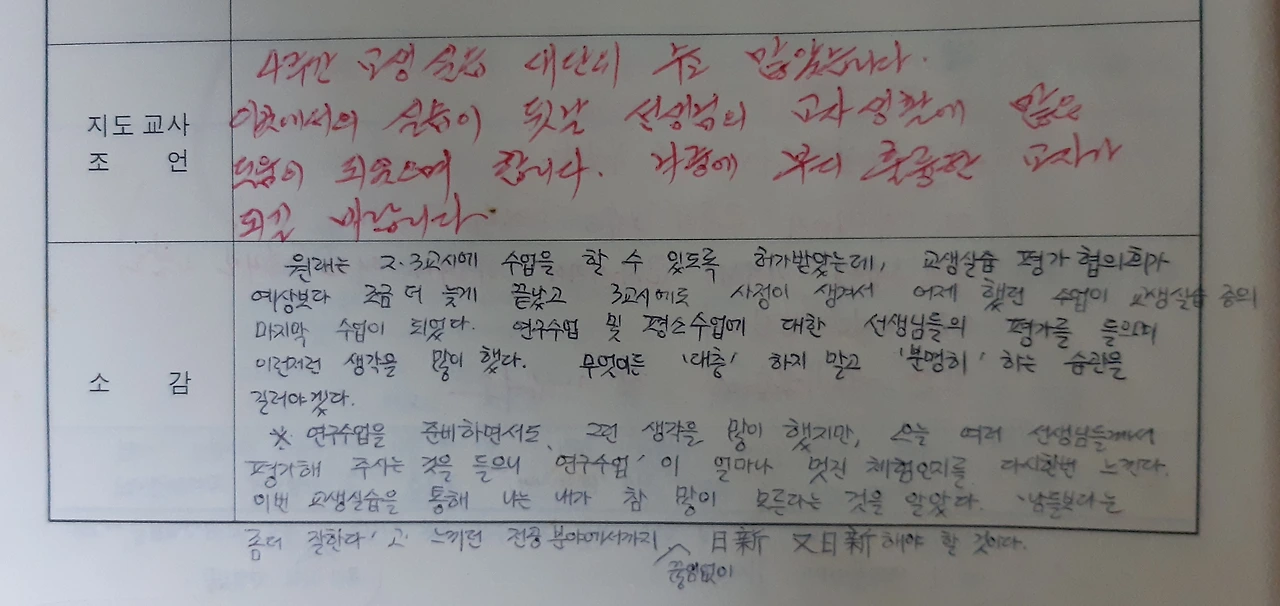 4주간 교생실습 대단히 수고 많았습니다.
지도 교사
이곳에서의 실습이 뒷날 선생님의 교사생활에 많은
조 언
도움이 되었으면 합니다. 부디 훌륭한 교사가
되길 바랍니다.
원래는 2·3교시에 수업을 할 수 있도록 허가받았는데, 교생실습 평가 협의회가
예상보다 조금 더 늦게 끝났고 3교시에도 사정이 생겨서 어제 했던 수업이 교생실습 중의
마지막 수업이 되었다. 연구수업 및 평소수업에 대한 선생님들의 평가를 들으며
이런저런 생각을 많이 했다. 무엇이든 '대충' 하지 말고 '분명히' 하는 습관을
소 감
길러야겠다.
※ 연구수업을 준비하면서도 그런 생각을 많이 했지만, 오늘 여러 선생님들께서
평가해 주시는 것을 들으니 '연구수업'이 얼마나 멋진 체험인지를 다시한번 느낀다.
이번 교생실습을 통해 나는 내가 참 많이 모른다는 것을 알았다. '남들보다는
좀더 잘한다'고 느끼던 전공분야에서까지 끊임없이 日新 又日新해야 할 것이다.